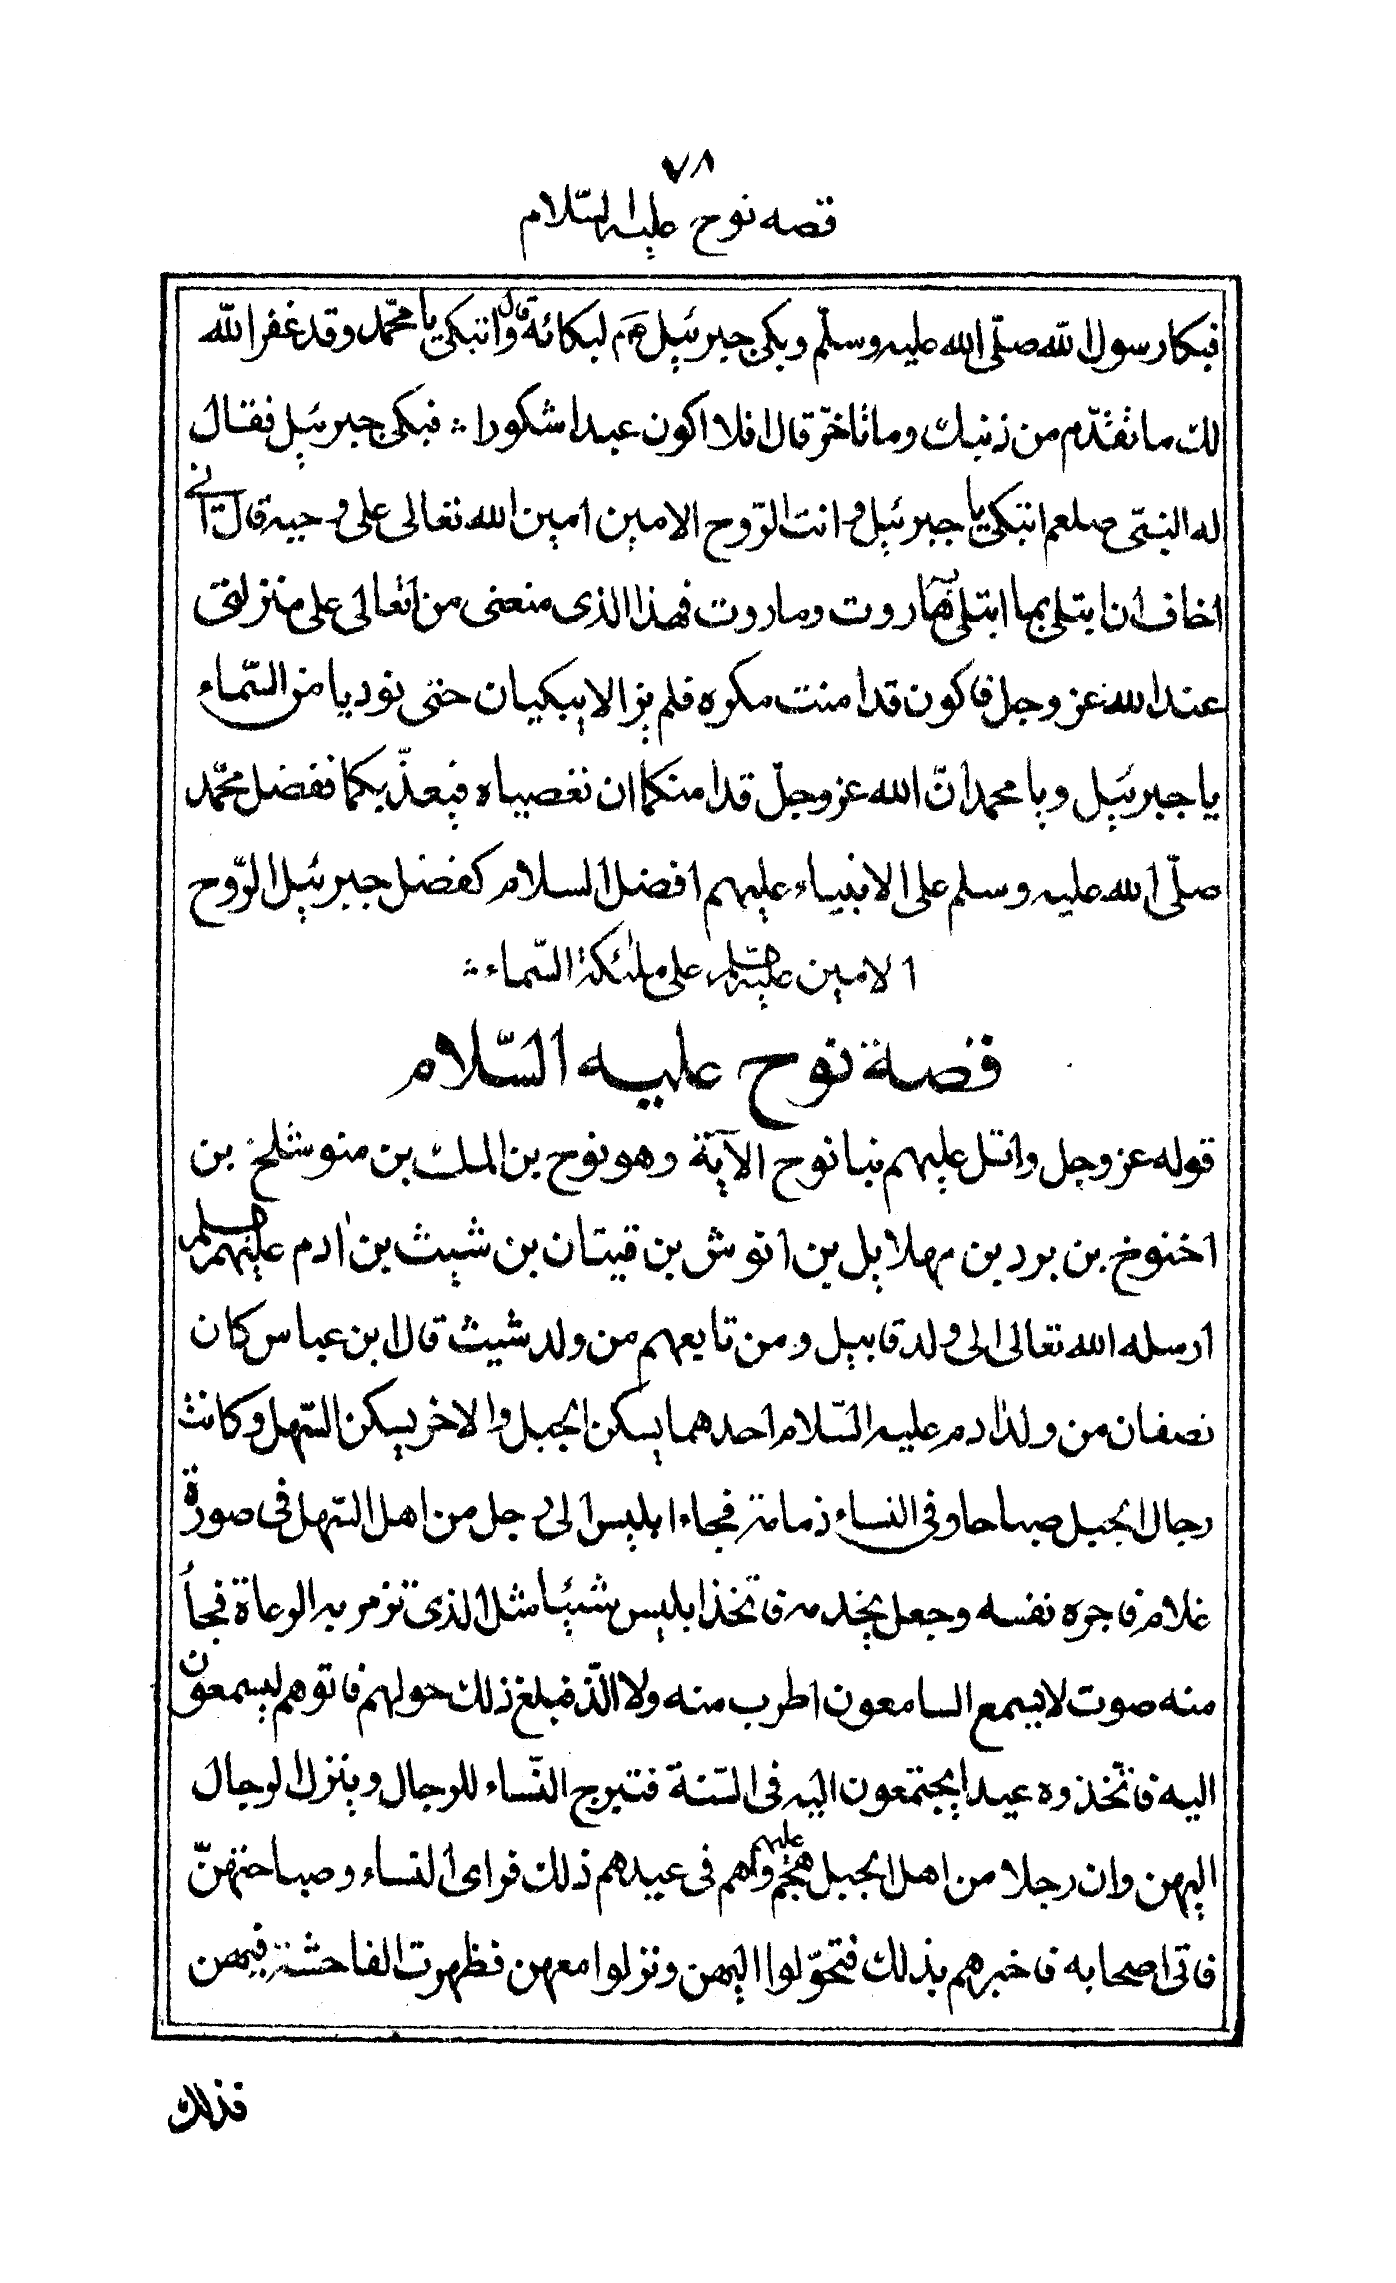 ٧٨
قصه نوح عليه السّلام
فبكا رسول الله صلّى الله عليه وسلّم وبكى جبرئيل عم لبكائه وقال اتبكى يا محمّد وقد غفر الله
لك ما تقدّم من ذنبك وما تاخّر قال افلا اكون عبدا شكورا ؞ فبكى جبرئيل فقال
له النبىّ صلعم اتبكى يا جبرئيل وانت الرّوح الامين امين الله تعالى على وحيه قال انى
اخاف ان ابتلى بما ابتلى به هاروت وماروت فهذا الذى منعنى من اتعالى على منزلتى
عند الله عز وجل فاكون قد امنت مكره فلم يزالا يبكيان حتى نوديا من السّماء
يا جبرئيل ويا محمد انّ الله عز وجلّ قد امنكما ان تعصياه فيعذّبكما ففضل محمّد
صلّى الله عليه وسلم على الانبياء عليهم افضل السلام كفضل جبرئيل الرّوح
الامين عليه السلم على ملئكة السّماء ؞
قصة نوح عليه السّلام
قوله عز وجل واتل عليهم نبا نوح الآية وهو نوح بن الملك بن متوشلخ بن
اخنوخ بن برد بن مهلايل بن انوش بن قيتان بن شيث بن ادم عليهم السلم
ارسله الله تعالى الى ولد قابيل ومن تايعهم من ولد شيث قال ابن عباس كان
نصفان من ولد ادم عليه السّلام احدهما يسكن الجبل والاخر يسكن السّهل وكانت
رجال الجبل صباحا وفى النساء ذمامة فجاء ابليس الى رجل من اهل السّهل فى صورة
غلام فاجره نفسه وجعل يخدمه فاتخذ ابليس شيئا مثل الذى تزمر به الرعاة فجأ
منه صوت لا يسمع السامعون اطرب منه ولا الذّ فبلغ ذلك حولهم فاتوهم ليسمعون
اليه فاتّخذوه عيدا يجتمعون اليه فى السّنة فتتبرج النّساء للرجال وينزل الرجال
اليهن وان رجلا من اهل الجبل هجم عليهم وهم فى عيدهم ذلك فراى النساء وصباحتهنّ
فاتى اصحابه فاخبرهم بذلك فتحوّلوا اليهن ونزلوا معهن فظهرت الفاحشة فيهن
فذلك